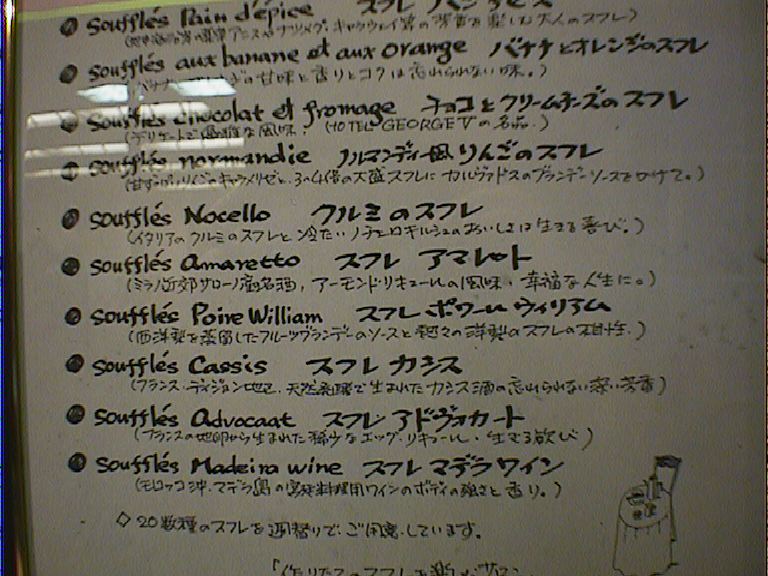 Soufflés Pain d'épice スフレ パン デピス
Soufflés aux banane et aux orange バナナとオレンジのスフレ
の甘味と香りとコクは忘れられない味。)
Soufflés chocolat et fromage チョコとクリームチーズのスフレ
(デリケートで優雅な風味. HOTEL GEORGE V の名品.)
Soufflés normandie ノルマンディー風りんごのスフレ
(甘ずっぱいりんごのキャラメリゼと、3〜4倍の大盛スフレに カルヴァドスのブランデーソースをかけて。)
Soufflés Nocello クルミのスフレ
(イタリアのクルミのスフレと 冷たいノチェロ のおいしさは生きる喜び。)
Soufflés Amaretto スフレ アマレット
(ミラノ近郊サローノ産名酒, アーモンドリキュールの風味. 幸福な人生に。)
Soufflés Poire William スフレ ポワール ウィリアム
(西洋梨を蒸留したフルーツブランデーのソースと 洋梨のスフレの相性.)
Soufflés Cassis スフレ カシス
(フランス・ディジョン地区. 天然 で生まれたカシス酒の忘れられない深い芳香)
Soufflés Advocaat スフレ アドヴォカート
(フランスの地卵から生まれた エッグ・リキュール. 生きる歓び)
Soufflés Madeira wine スフレ マデラワイン
(モロッコ沖. マデラ島の 料理用ワインのボディの強さと香り。)
◇20数種のスフレを週替りで、ご用意しています。
「作りたてのスフレを楽しむ